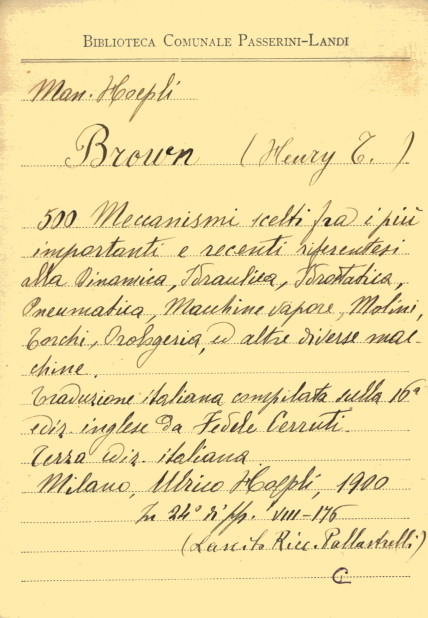 BIBLIOTECA COMUNALE PASSERINI-LANDI
Man. Hoepli
Brown (Henry T.)
500 Meccanismi scelti fra i più
importanti e recenti riferentesi
alla Dinamica, Idraulica, Idrostatica,
Pneumatica, Macchine vapore, Molini,
Torchi, Orologeria, ed altre diverse mac-
chine.
Traduzione italiana compilata sulla 16ª
ediz. inglese da Fedele Cerruti.
Terza ediz. italiana
Milano, Ulrico Hoepli, 1900
In 24° di pp. VIII-176
(Lascito Ricc. Pallastrelli)
C